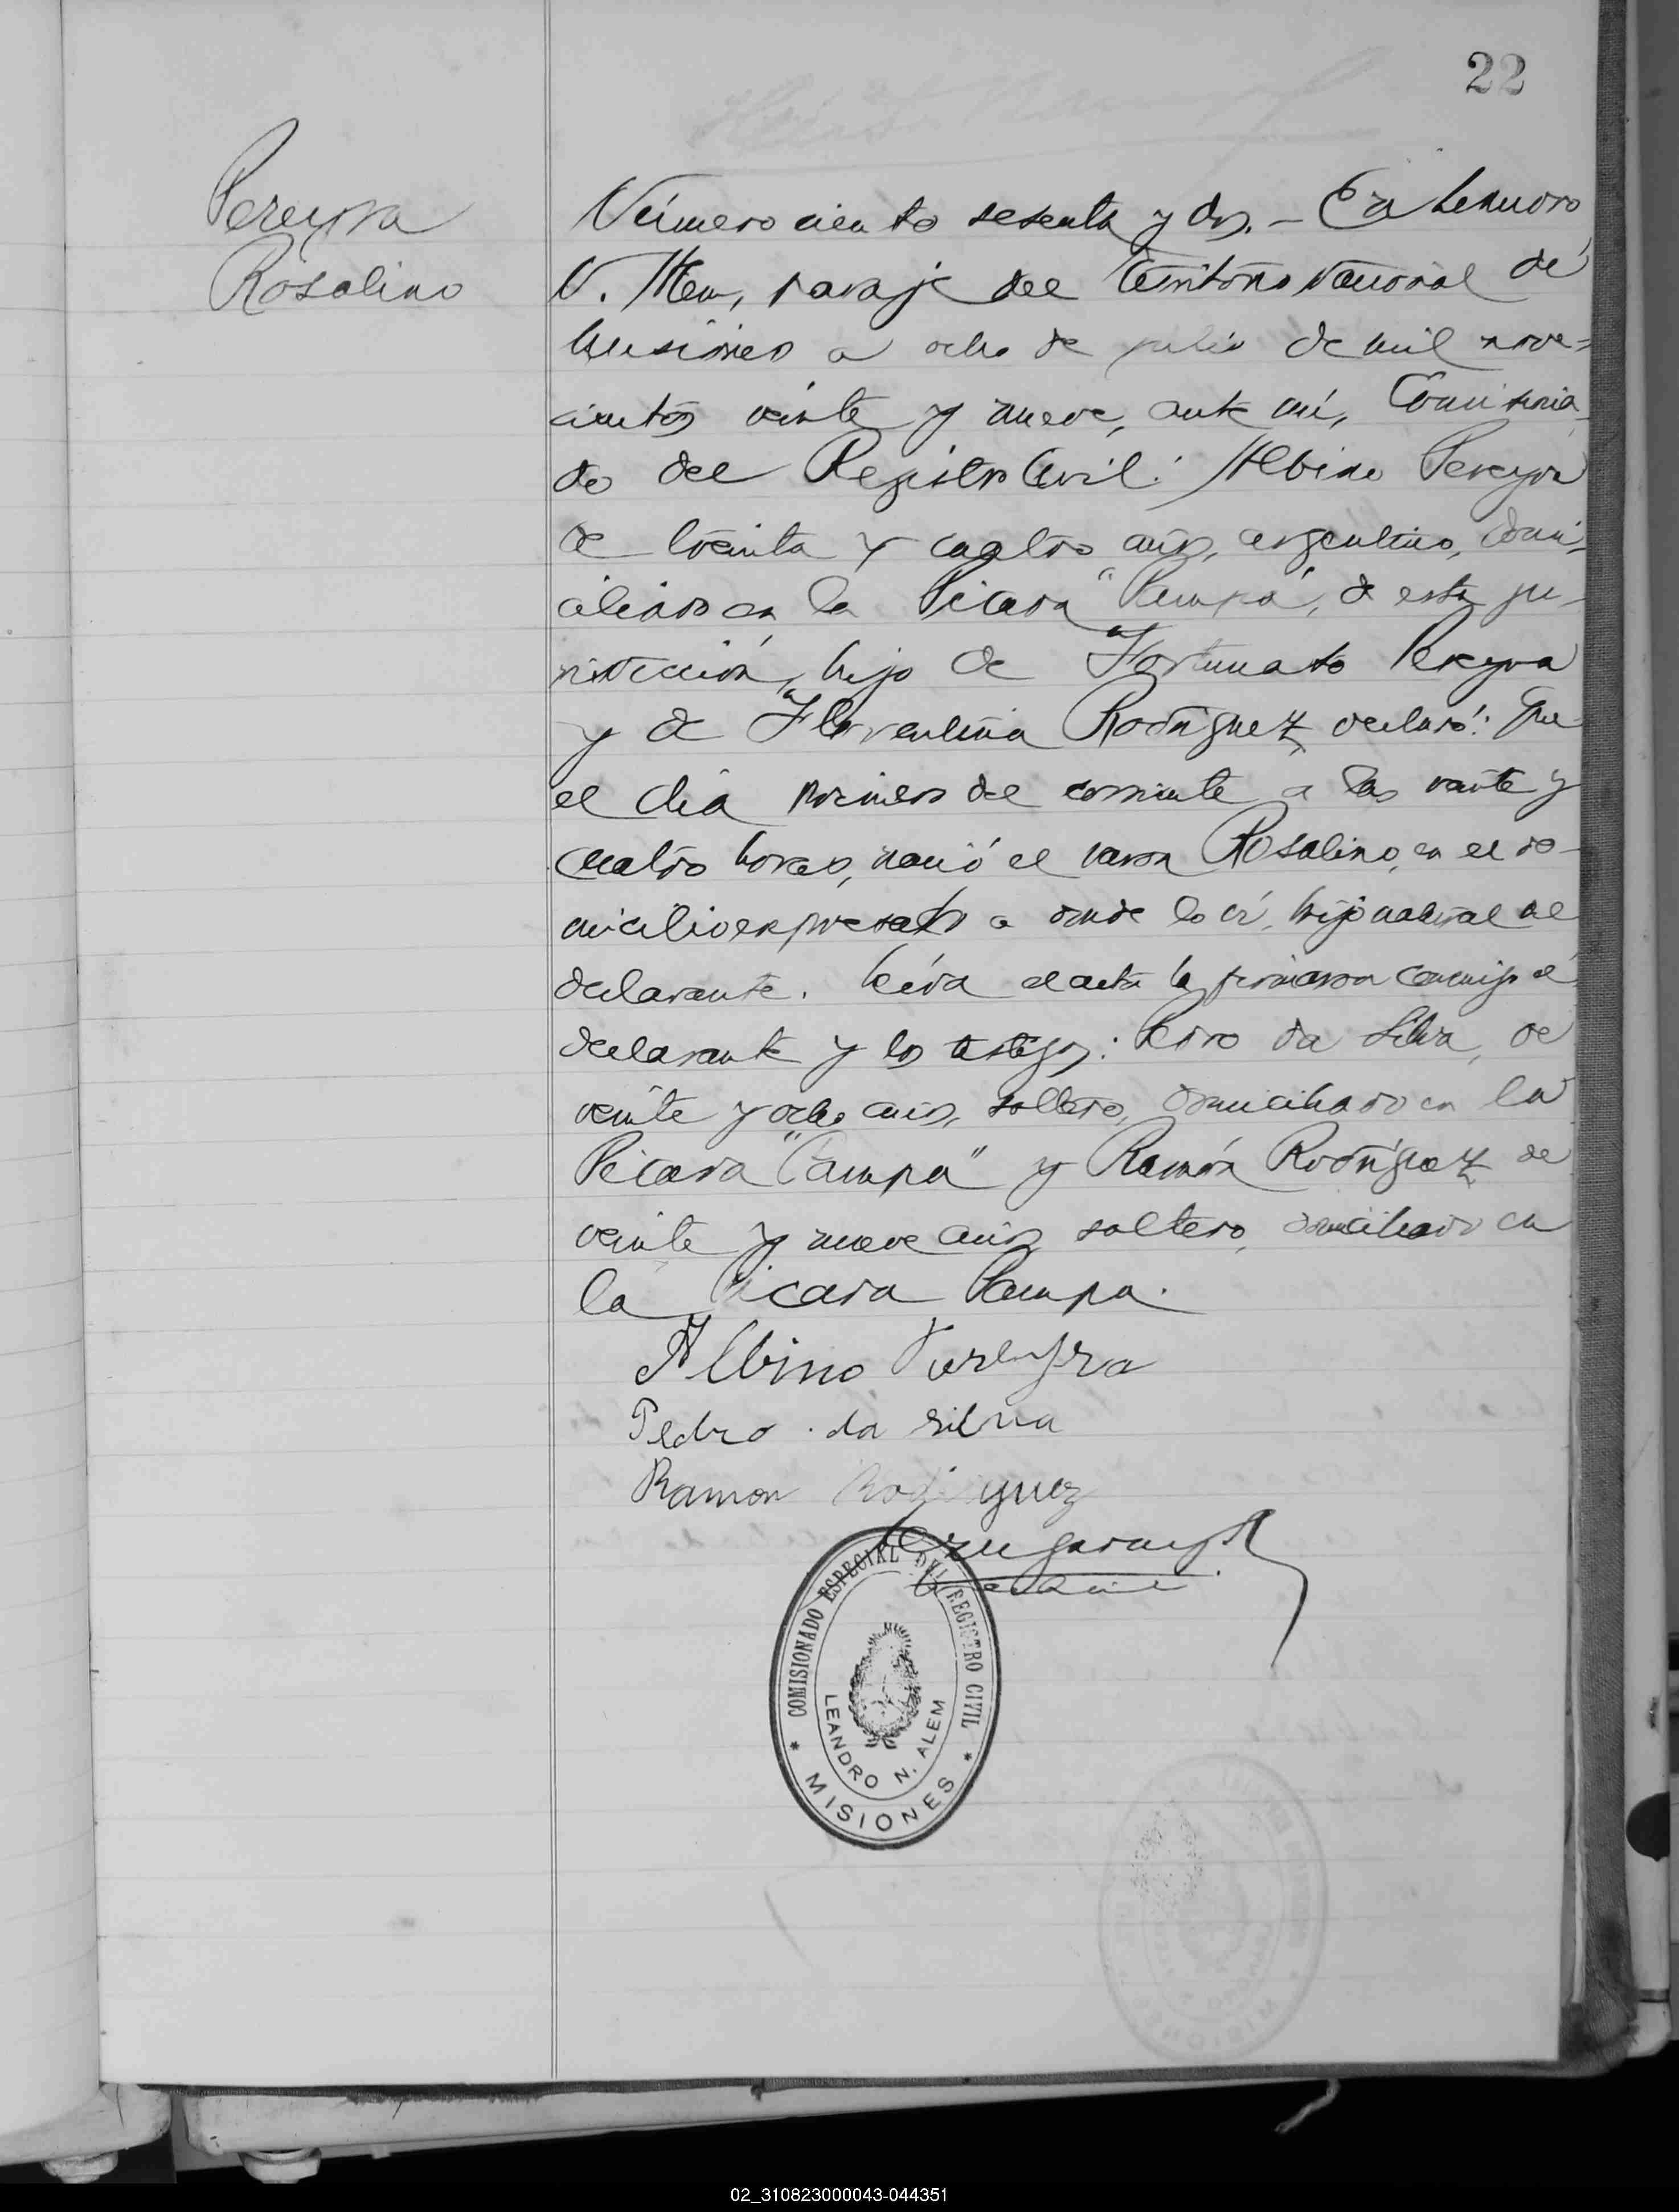 22
Pereyra
Rosalino
Número ciento sesenta y dos. - En Leandro
N. Alem, paraje del Territorio Nacional de
Misiones a ocho de julio de mil nove=
cientos veinte y nueve, ante mí, Comisiona-
do del Registro Civil: Albino Pereyra
de treinta y cuatro años, argentino, domi-
ciliado en la Picada "Pampa", de esta ju-
risdicción, hijo de Fortunato Pereyra
y de Florentina Rodríguez, declaró: Que
el día primero del corriente a las veinte y
cuatro horas, nació el varon Rosalino, en el do-
micilio expresado a donde lo ví, hijo natural del
declarante. Leída el acta la firmaron conmigo el
declarante y los testigos: Pedro da Silva, de
veinte y ocho años, soltero, domiciliado en la
Picada "Pampa" y Ramón Rodríguez de
veinte y nueve años soltero, domiciliado en
la Picada Pampa.
Albino Pereyra
Pedro da silva
Ramon Rodriguez
COMISIONADO ESPECIAL DEL REGISTRO CIVIL
LEANDRO N. ALEM
* MISIONES *
02_310823000043-044351